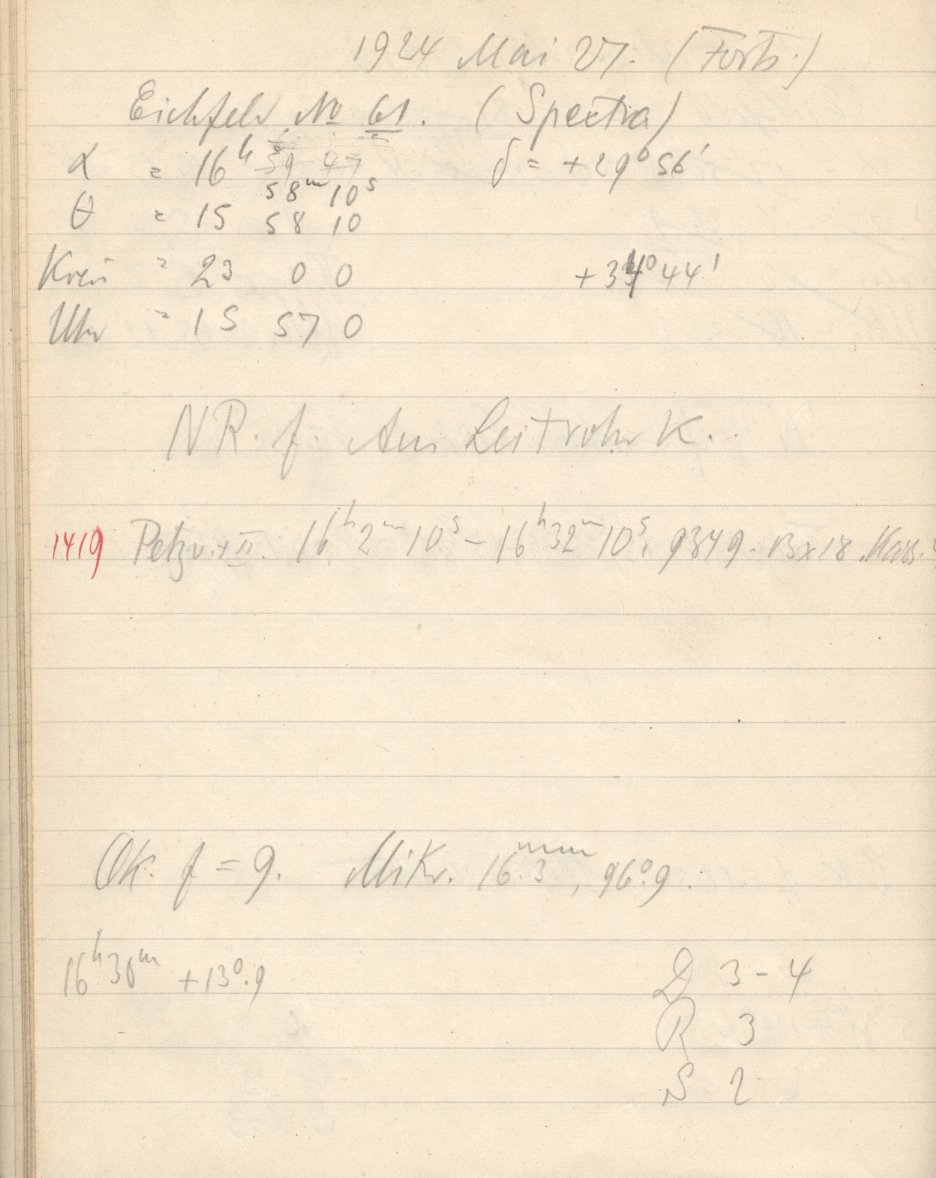 1924 Mai 27. (Forts.)
Eichfeld No 61. (Spectra)
α = 16h 58m 10s δ = +29° 56'
θ = 15 58 10
Kreis = 23 0 0 +34° 44'
Uhr = 15 57 0
NR. f. Am Leitrohr K.
1419 Petzv. I+II. 16h 2m 10s – 16h 32m 10s, 9349. 13x18 Mass.
Ok. f = 9. Mikr. 16.3mm, 96°.9.
16h 30m +13°.9 D 3-4
R 3
S 2